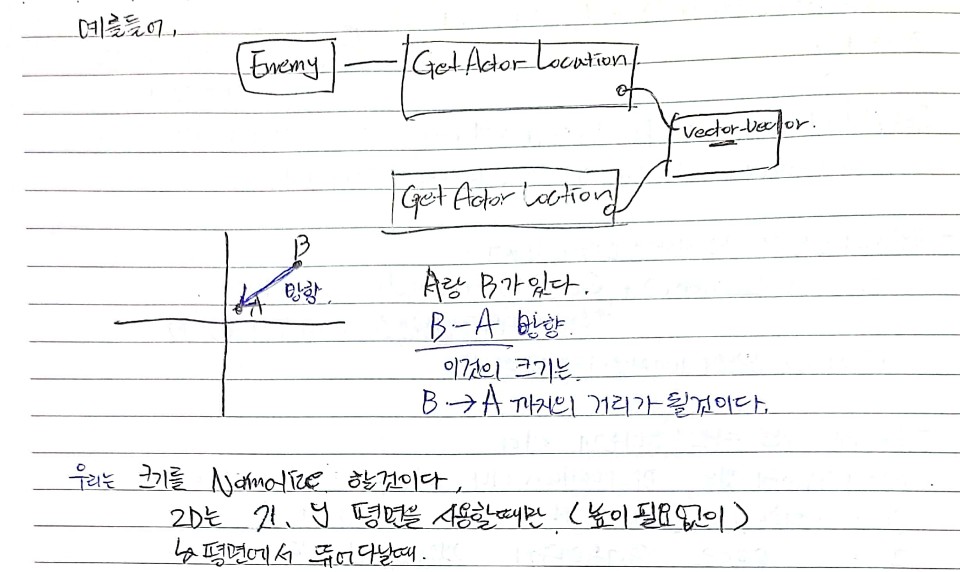 예를들어,
Enemy
Get Actor Location
vector-vector.
Get Actor Location
B
A
방향.
A랑 B가 있다.
B-A 방향.
이것의 크기는.
B→A 까지의 거리가 될것이다.
우리는 크기를 Nomalize 할것이다,
2D는 X, y 평면을 사용할때만 (높이 필요없이)
↳ 평면에서 뛰어다닐때.